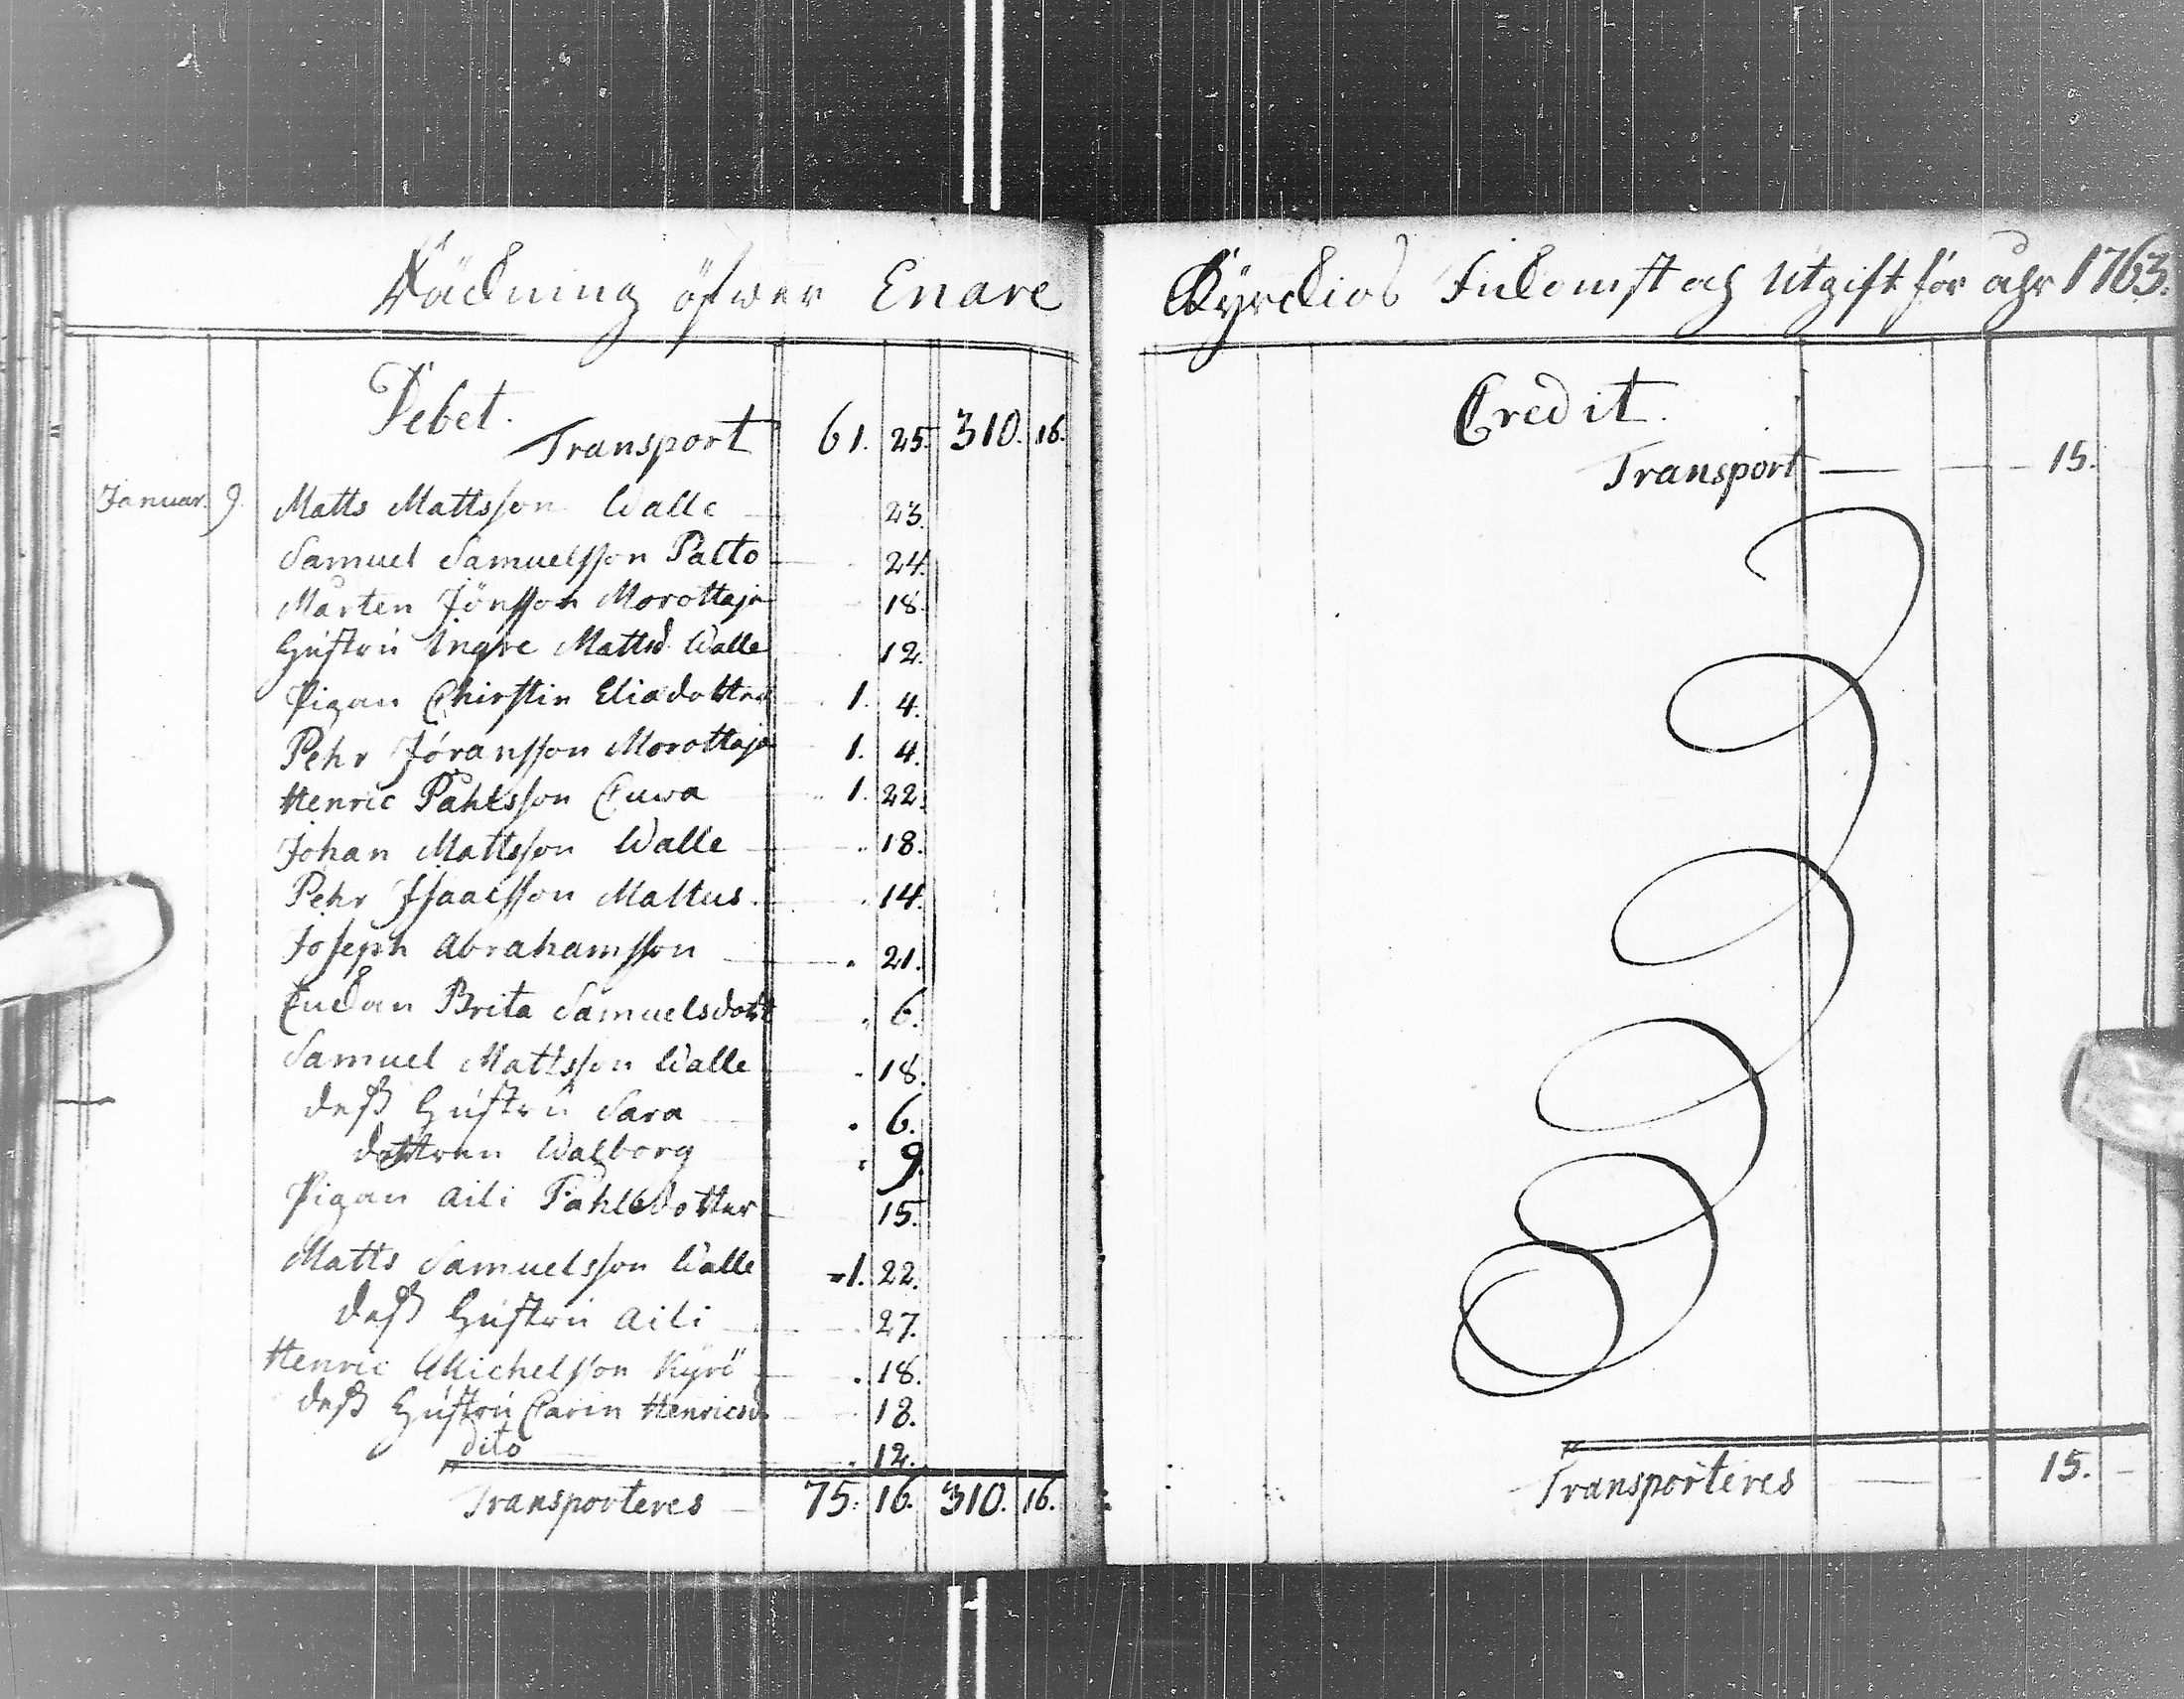 Räckning öfwer Enare
Debet.
Transport 61. 25. 310. 16.
Januar. 9. Matts Mattsson Walle 23.
Samuel Samuelsson Palto 24.
Mårten Jönsson Morottaja 18.
Hustru Ingre Mattsd. Walle 12.
Pigan Chirstin Eliædotter 1. 4.
Pehr Jöransson Morottaja 1. 4.
Henric Påhlsson Cuwa 1. 22.
Johan Mattsson Walle 18.
Pehr Isaacsson Mattus. 14.
Joseph Abrahamsson 21.
Enckan Brita Samuelsdott 6.
Samuel Mattsson Walle 18.
dess Hustru Sara 6.
dottren Walborg 9.
Pigan Aili Påhlsdotter 15.
Matts Samuelsson Walle 1. 22.
dess Hustru Aili 27.
Henric Michelsson Kyrö 18.
dess Hustru Carin Henricsd. 18.
dito 12.
Transporteres 75. 16. 310. 16.
Kyrckios Inckomst och Utgift för åhr 1763.
Credit.
Transport 15.
Transporteres 15.